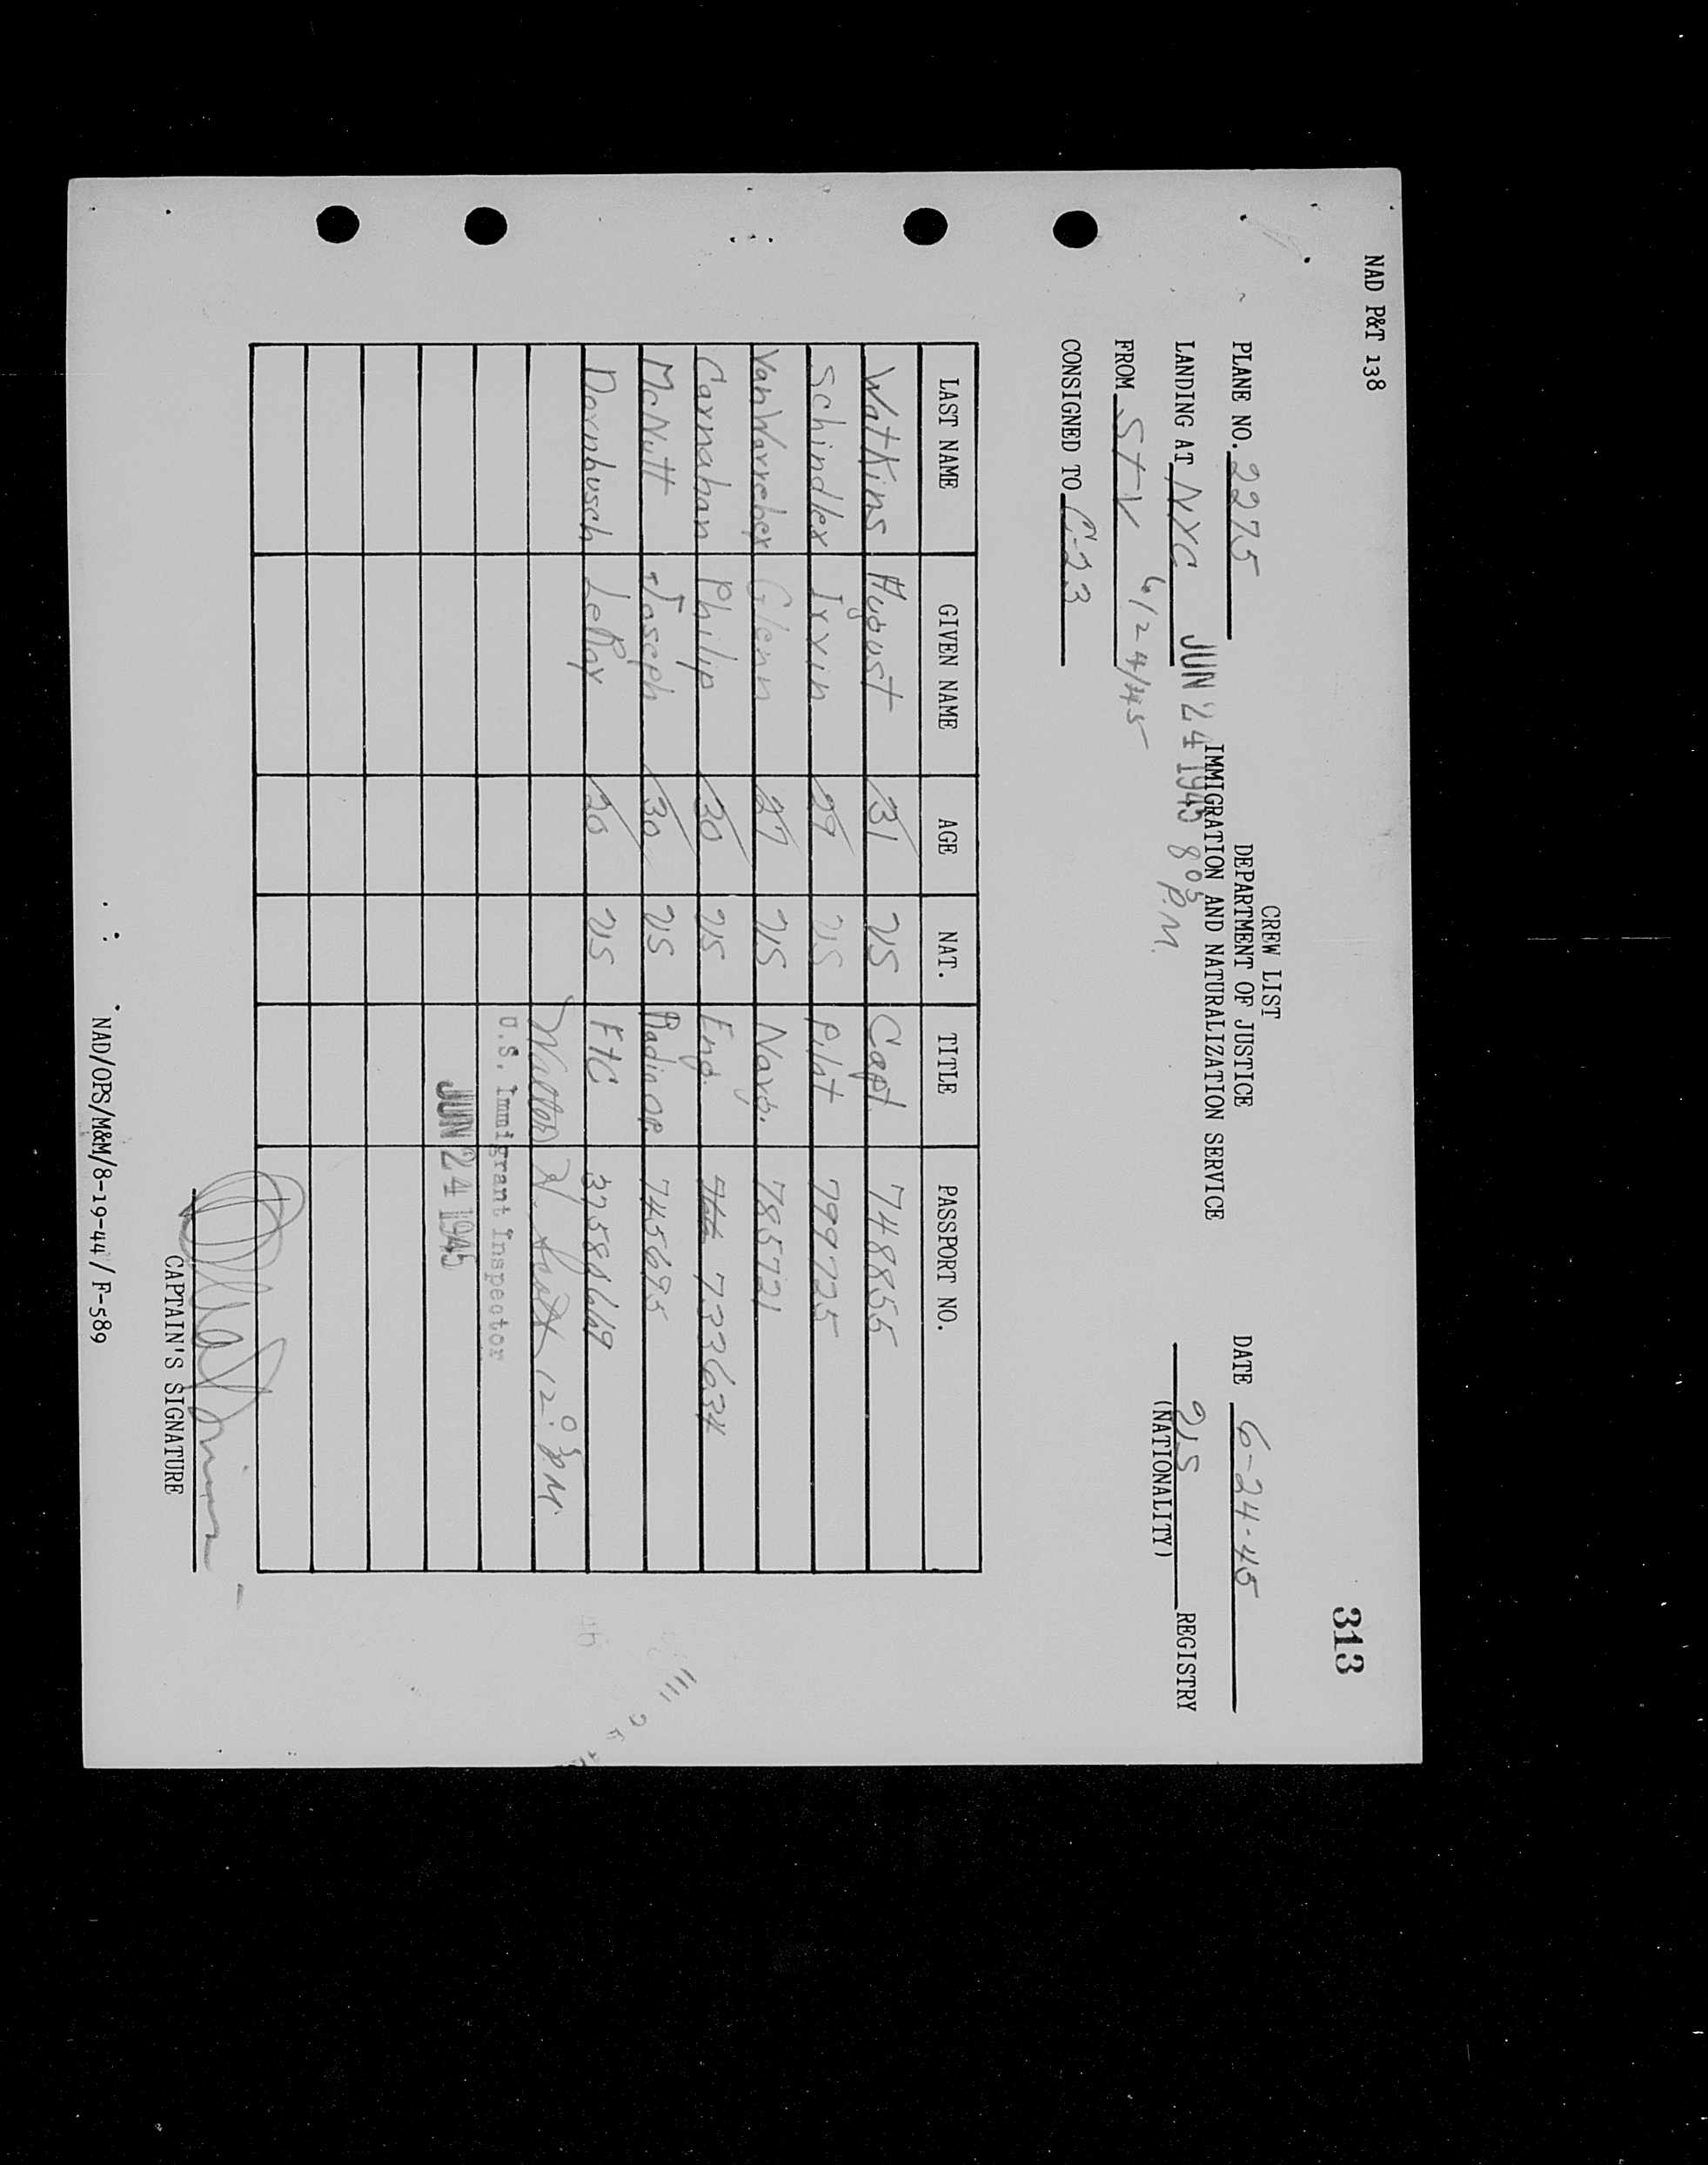 NAD P&T 138
313
CREW LIST
DEPARTMENT OF JUSTICE
IMMIGRATION AND NATURALIZATION SERVICE
PLANE NO. 2275
DATE 6-24-45
LANDING AT NYC JUN 24 1945 8 03 P.M.
US REGISTRY
(NATIONALITY)
FROM STV 6/24/45
CONSIGNED TO C-23
LAST NAME GIVEN NAME AGE NAT. TITLE PASSPORT NO.
Watkins August 31 US Capt. 748855
Schindler Irvin 29 US Pilot 799725
VanWarreber Glenn 27 US Navg. 785721
Carnahan Philip 30 US Eng. 733634
McNutt Joseph 30 US Radio OP. 745695
Dornbusch LeRoy 20 US FTC 37588669
Walter H. 12 03 PM.
U.S. Immigrant Inspector
JUN 24 1945
CAPTAIN'S SIGNATURE
NAD/OPS/M&M/8-19-44/F-589